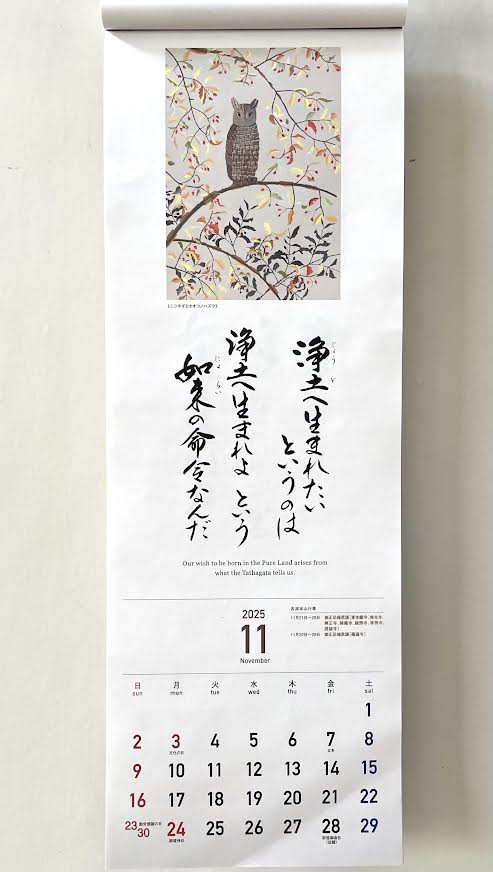 【ニシキギとオオコノハズク】
浄土へ生まれたい
じょうど
というのは
浄土へ生まれよという
如来の命令なんだ
にょらい
Our wish to be born in the Pure Land arises from
what the Tathagata tells us.
2025
11
November
各派本山行事
11月21日〜28日
11月22日〜28日
日 月 火 水 木 金 土
sun mon tue wed thu fri sat
1
2 3 4 5 6 7 8
文化の日 立冬
9 10 11 12 13 14 15
16 17 18 19 20 21 22
23 30 勤労感謝の日 24 25 26 27 28 29
振替休日